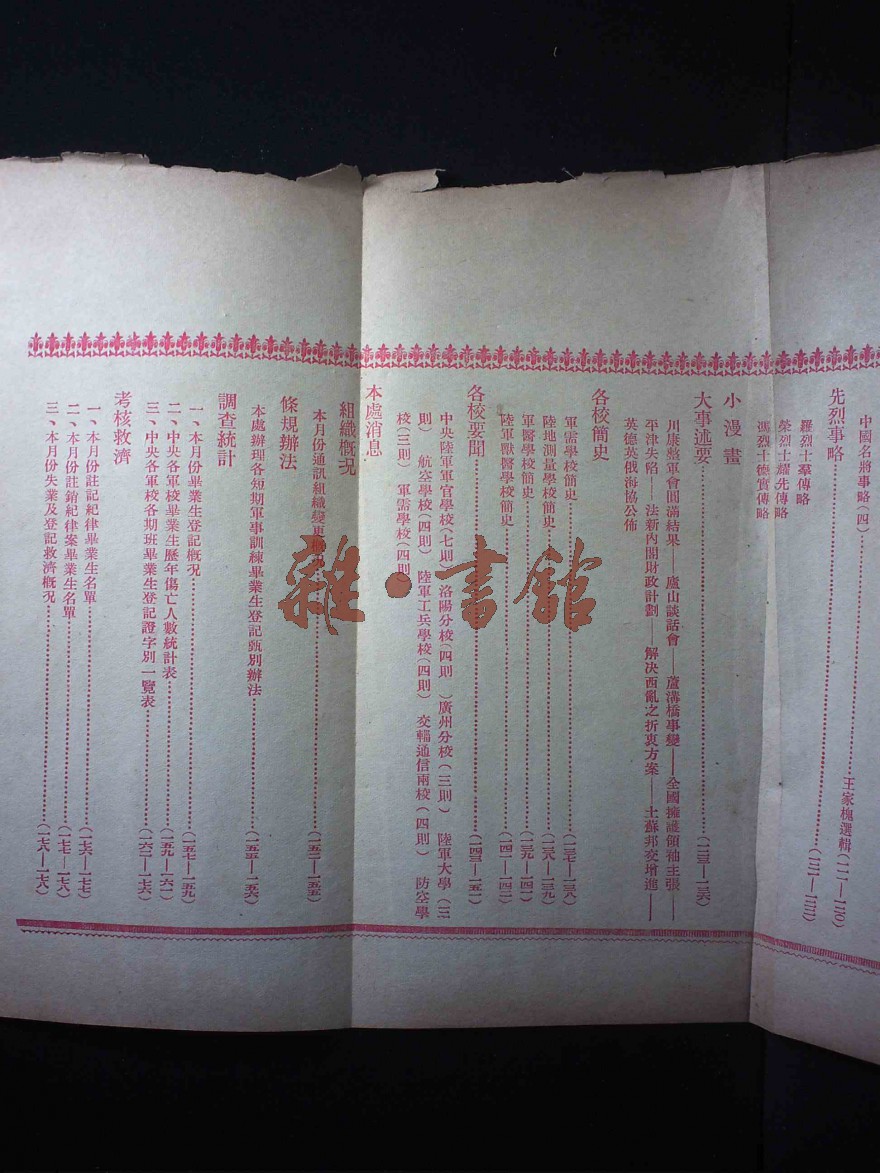 中國名將事略(四)………王家槐選輯(一一一—一二〇)
先烈事略………(一二一—一二二)
羅烈士羣傳略
榮烈士耀先傳略
馮烈士德實傳略
小漫畫
大事述要………(一二三—一三六)
川康整軍會圓滿結果——廬山談話會——蘆溝橋事變——全國擁護領袖主張——
平津失陷——法新內閣財政計劃——解決西亂之折衷方案——土蘇邦交增進——
英德英俄海協公佈
各校簡史
軍需學校簡史………(一三七—一三八)
陸地測量學校簡史………(一三八—一三九)
軍醫學校簡史………(一三九—一四一)
陸軍獸醫學校簡史………(一四一—一四二)
各校要聞………(一四三—一五一)
中央陸軍軍官學校(七則)洛陽分校(四則)廣州分校(三則) 陸軍大學(三
則) 航空學校(四則) 陸軍工兵學校(四則) 交輜通信兩校(四則) 防空學
校(三則) 軍需學校(四則)
本處消息
組織概況
本月份通訊組織變更概况………(一五二—一五五)
條規辦法
本處辦理各短期軍事訓練畢業生登記甄別辦法………(一五五—一五六)
調查統計
一、本月份畢業生登記概况………(一五七—一五九)
二、中央各軍校畢業生歷年傷亡人數統計表………(一五九—一六一)
三、中央各軍校各期班畢業生登記證字別一覽表………(一六二—一七六)
考核救濟
一、本月份註記紀律畢業生名單………(一七六—一七七)
二、本月份註銷紀律案畢業生名單………(一七七—一七八)
三、本月份失業及登記救濟概况………(一七八—一七八)
雜·書館